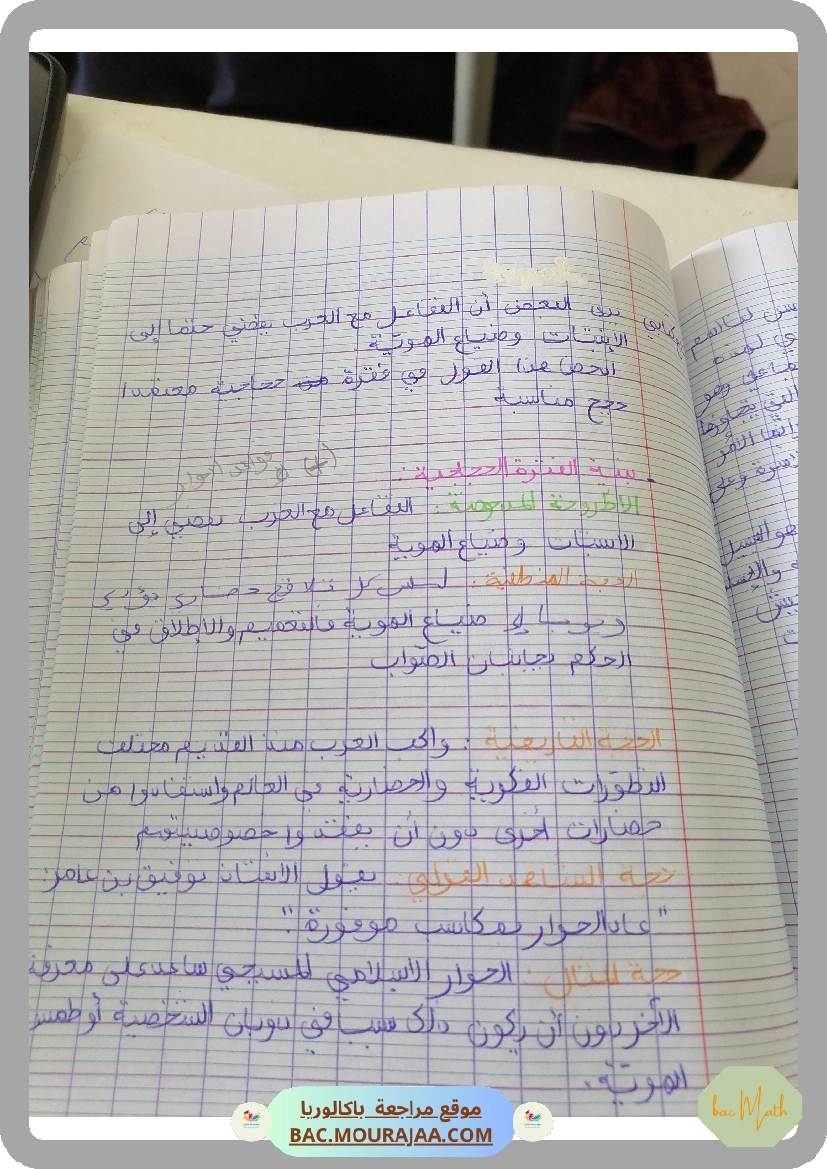 يرى البعض أن التفاعل مع الغرب يفضي حتما إلى
الإنبتات وضياع الهويّة.
ادحض هذا القول في فقرة حجاجية معتمدا
حجج مناسبة
- بنية الفقرة الحجاجية:
(+)
الأطروحة المدحوضة: التفاعل مع الغرب يفضي إلى
الانبتات وضياع الهوية
الحجة المنطقية: ليس كل تلاقح حضاري يؤدي
وجوبا إلى ضياع الهوية فالتعميم والإطلاق في
الحكم يجانبان الصّواب
الحجة التاريخية: واكب العرب منذ القديم مختلف
التطوّرات الفكرية والحضارية في العالم واستفادوا من
حضارات أخرى دون أن يفقدوا خصوصيتهم
حجة الشاهد القولي: يقول الأستاذ توفيق بن عامر:
"عاد الحوار بمكاسب موفورة".
حجة المثال: الحوار الاسلامي المسيحي ساعد على معرفة
الآخر دون أن يكون ذلك سببا في ذوبان الشخصية أو طمس
الهويّة.
موقع مراجعة باكالوريا
BAC.MOURAJAA.COM
bac Math